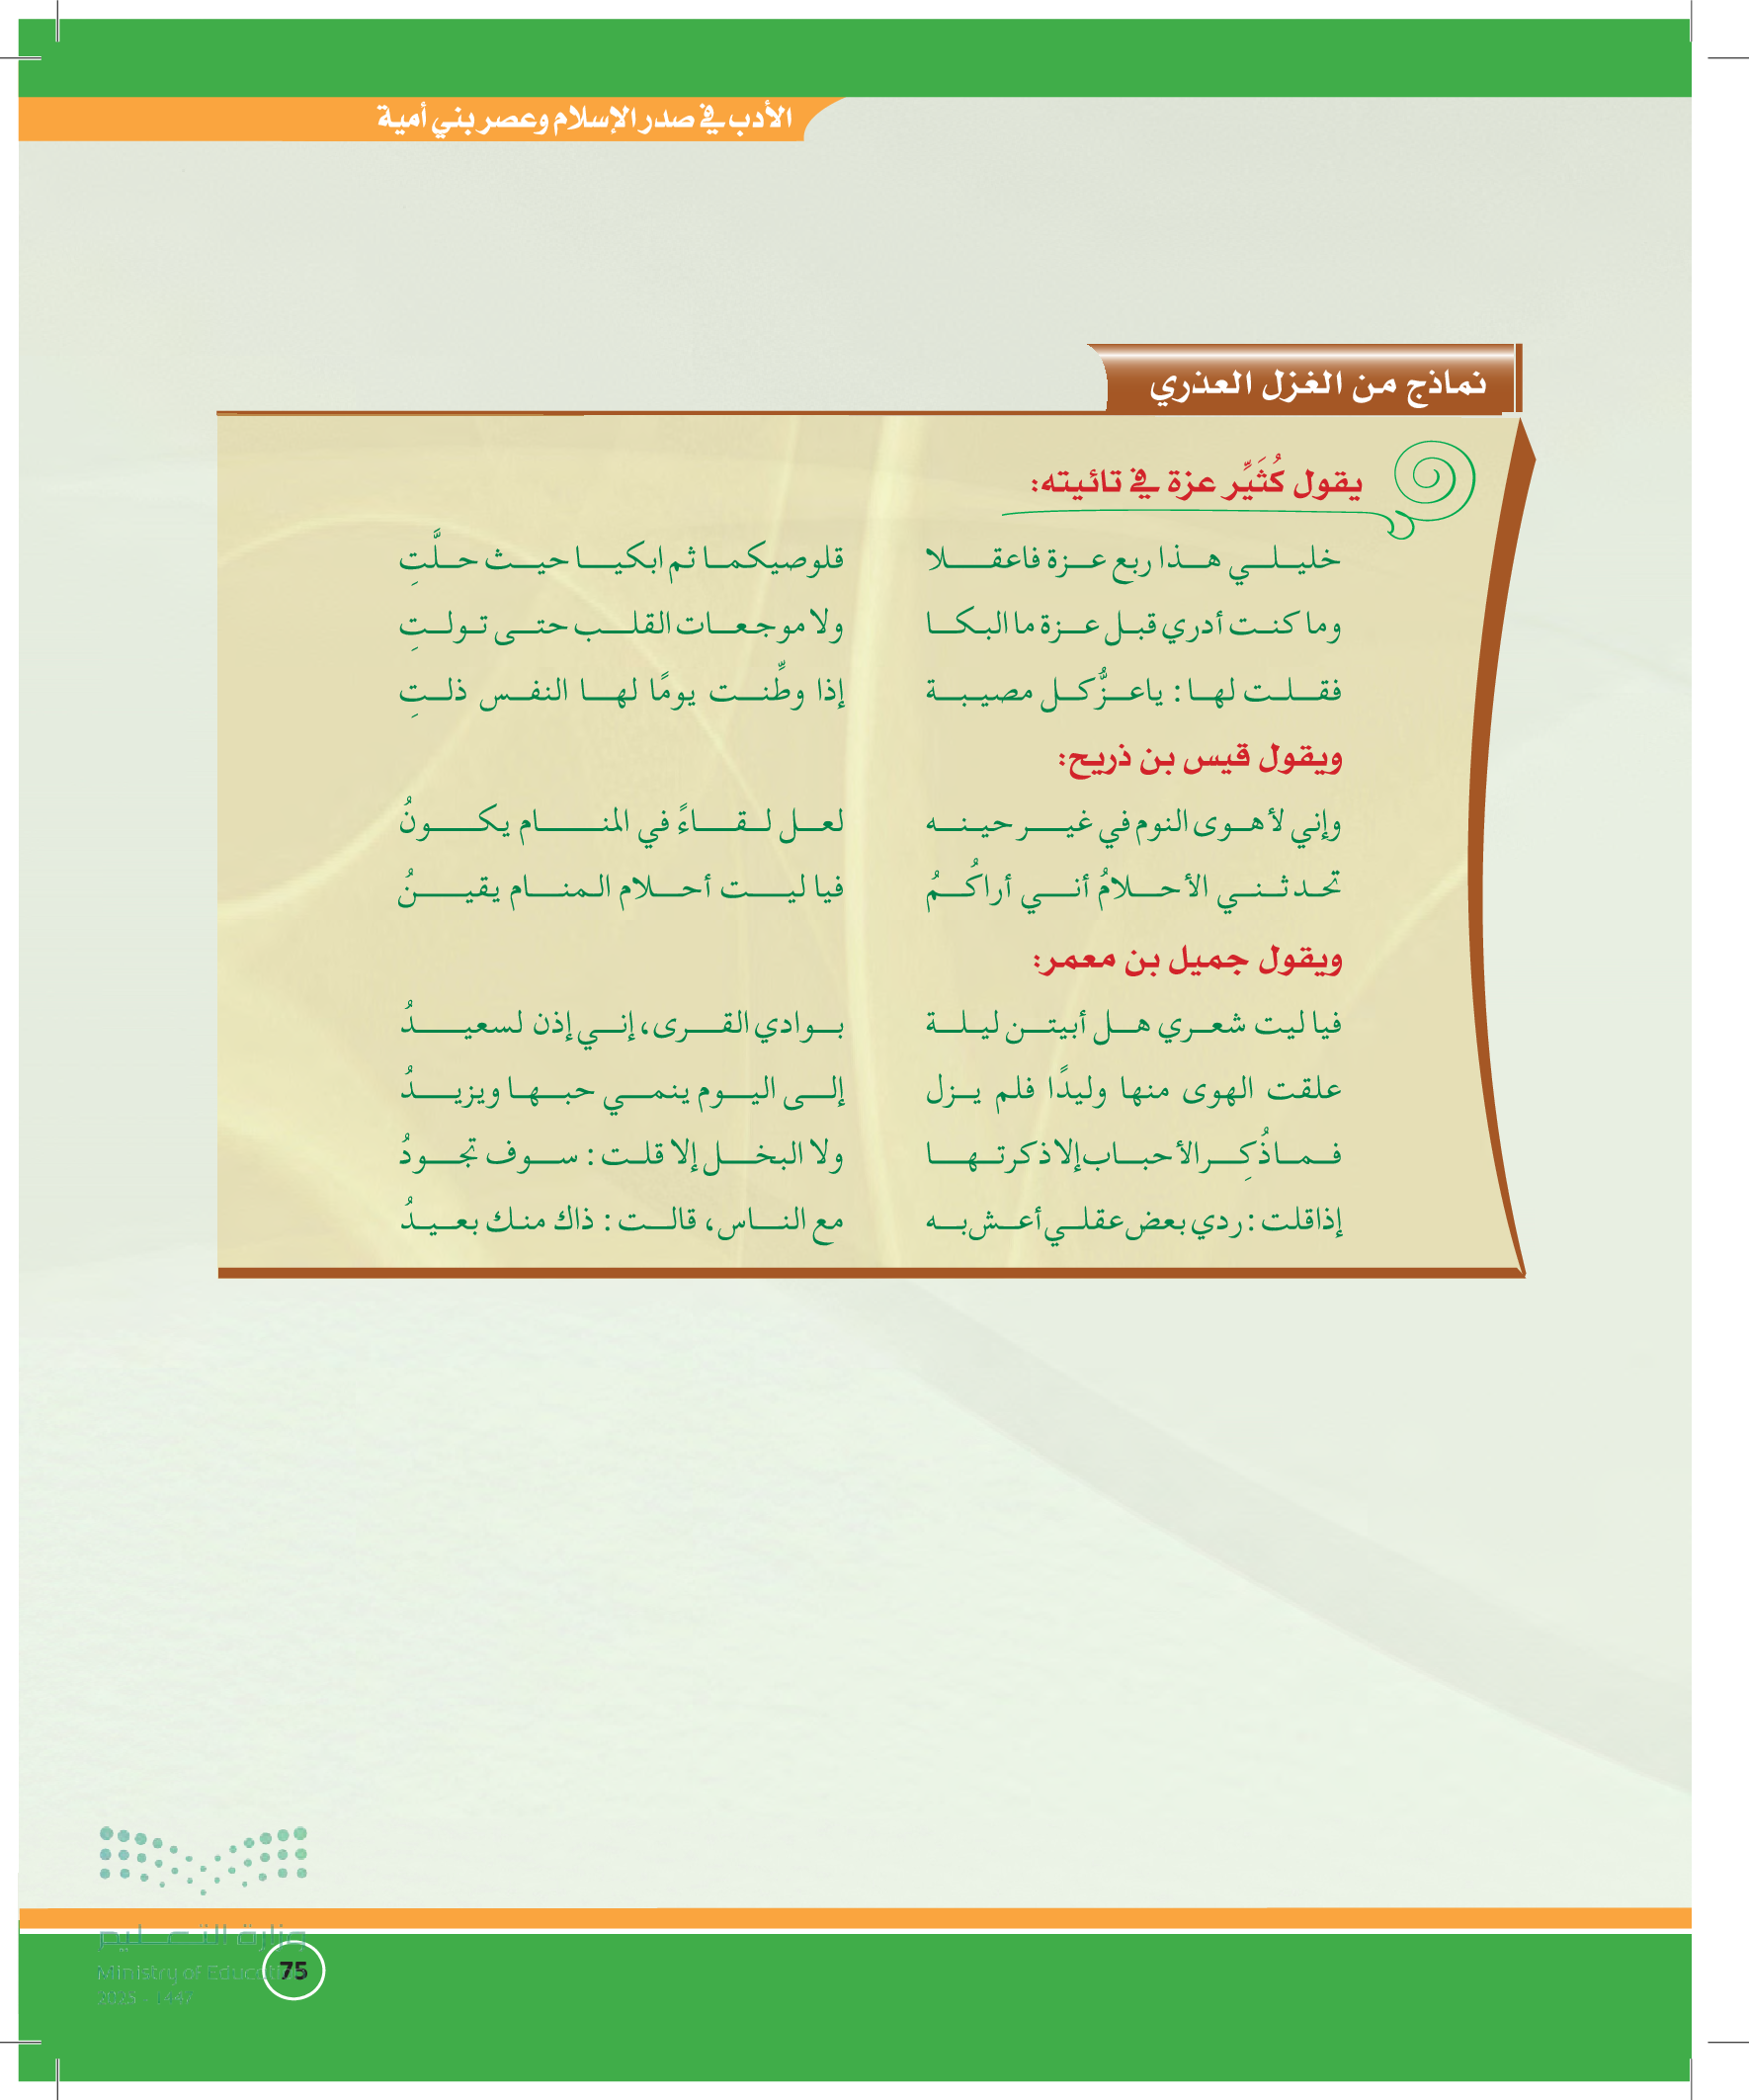 الأدب في صدر الإسلام وعصر بني أمية
نماذج من الغزل العذري
يقول كُثَيِّر عزة في تائيته:
خليلي هذا ربع عزة فاعقلا قلوصيكما ثم ابكيا حيث حلَّتِ
وما كنت أدري قبل عزة ما البكا ولا موجعات القلب حتى تولتِ
فقلت لها: يا عزُّ كل مصيبة إذا وطِّنت يومًا لها النفس ذلتِ
ويقول قيس بن ذريح:
وإني لأهوى النوم في غير حينه لعل لقاءً في المنام يكونُ
تحدثني الأحلامُ أني أراكُمُ فيا ليت أحلام المنام يقينُ
ويقول جميل بن معمر:
فيا ليت شعري هل أبيتن ليلة بوادي القرى، إني إذن لسعيدُ
علقت الهوى منها وليدًا فلم يزل إلى اليوم ينمي حبها ويزيدُ
فما ذُكِر الأحباب إلا ذكرتها ولا البخل إلا قلت: سوف تجودُ
إذا قلت: ردي بعض عقلي أعش به مع الناس، قالت: ذاك منك بعيدُ
وزارة التعليم
Ministry of Education
75
2025 - 1447